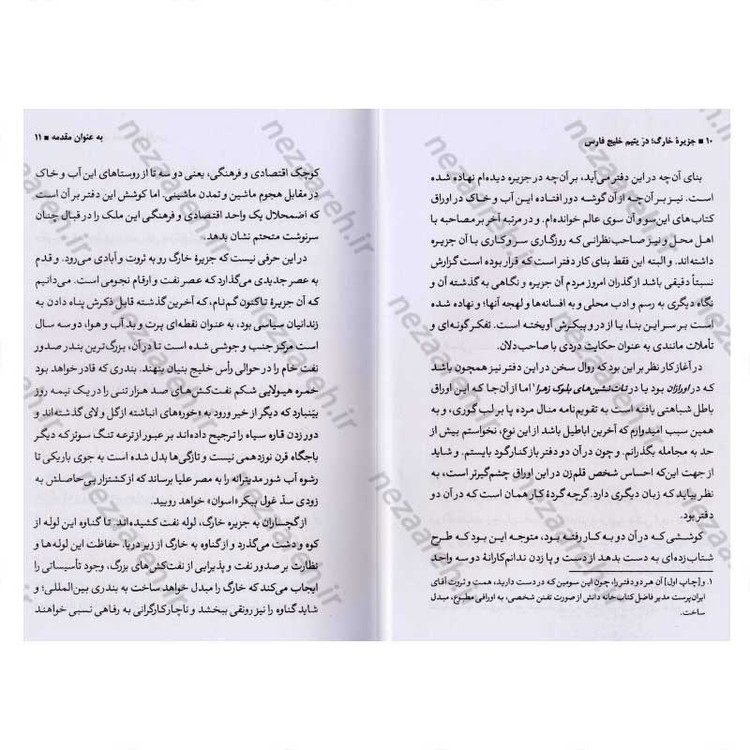 ۱۰ ■ جزیرهٔ خارگ؛ درّ یتیم خلیج فارس
بنای آن‌چه در این دفتر می‌آید، بر آن‌چه در جزیره دیده‌ام نهاده شده
است. نیز بر آن‌چه از آن گوشه دور افتاده این آب و خاک در اوراق
کتاب‌های این‌سو و آن سوی عالم خوانده‌ام. و در مرتبه آخر بر مصاحبه با
اهل محل و نیز صاحب‌نظرانی که روزگاری سر و کاری با آن جزیره
داشته‌اند. و البته این فقط بنای کار دفتر است که قرار بوده است گزارش
نسبتاً دقیقی باشد از گذران امروز مردم آن جزیره و نگاهی به گذشته آن و
نگاه دیگری به رسم و ادب محلی و به افسانه‌ها و لهجه آنها؛ و نهاده شده
است بر سر این بنا، یا از در و پیکرش آویخته است. تفکر گونه‌ای و
تأملات مانندی به عنوان حکایت دردی با صاحب‌دلان.
در آغاز کار نظر بر این بود که روال سخن در این دفتر نیز همچون باشد
که در اورازان بود یا در تات‌نشین‌های بلوک زهرا۱ اما از آن‌جا که این اوراق
باطل شباهتی یافته است به تقویم‌نامه منال مرده پا بر لب گوری، و به
همین سبب امیدوارم که آخرین اباطیل باشد از این نوع، نخواستم بیش از
حد به مجامله بگذرانم. و چون در آن دو دفتر باز کنار گود بایستم. و شاید
از جهت این‌که احساس شخص قلم‌زن در این اوراق چشم‌گیرتر است، به
نظر بیاید که زبان دیگری دارد. گرچه گردهٔ کار همان است که در آن دو
دفتر بود.
کوششی که در آن دو به کار رفته بود، متوجه این بود که طرح
شتاب‌زده‌ای به دست بدهد از دست و پا زدن ندانم‌کارانهٔ دو سه واحد
۱. و [چاپ اول] آن هر دو دفتر را، چون این سومین که در دست دارید، همت و ثروت آقای
ایران‌پرست مدیر فاضل کتاب‌خانه دانش از صورت تفنن شخصی، به اوراقی مطبوع، مبدل
ساخت.
به عنوان مقدمه ■ ۱۱
کوچک اقتصادی و فرهنگی، یعنی دو سه تا از روستاهای این آب و خاک
در مقابل هجوم ماشین و تمدن ماشینی. اما کوشش این دفتر بر آن است
که اضمحلال یک واحد اقتصادی و فرهنگی این ملک را در قبال چنان
سرنوشت متحتم نشان بدهد.
در این حرفی نیست که جزیرهٔ خارگ رو به ثروت و آبادی می‌رود. و قدم
به عصر جدیدی می‌گذارد که عصر نفت و ارقام نجومی است. می‌دانیم
که آن جزیرهٔ تاکنون گم‌نام، که آخرین گذشته قابل ذکرش پناه دادن به
زندانیان سیاسی بود، به عنوان نقطه‌ای پرت و بد آب و هوا، دو سه سال
است مرکز جنب و جوشی شده است تا در آن، بزرگ‌ترین بندر صدور
نفت خام را در حوالی رأس خلیج بنیان بنهند. بندری که قادر خواهد بود
خمره هیولایی شکم نفت‌کش‌های صد هزار تنی را در یک نیمه روز
بینبارد که دیگر از خیر ورود به «خور»های انباشته از گل و لای گذشته‌اند و
دور زدن قاره سیاه را ترجیح داده‌اند بر عبور از ترعه تنگ سوئز که دیگر
باجگاه قرن نوزدهمی نیست و تازگی‌ها بدل شده است به جوی باریکی تا
رشوه آب شور مدیترانه را به مصر علیا برساند که از کشتزار بی‌حاصلش به
زودی سدّ غول پیکر «اسوان» خواهد رویید.
از گچساران به جزیره خارگ، لوله نفت کشیده‌اند. تا گناوه این لوله از
کوه و دشت می‌گذرد و از گناوه به خارگ از زیر دریا. حفاظت این لوله‌ها و
نظارت بر صدور نفت و پذیرایی از نفت‌کش‌های بزرگ، وجود تأسیساتی را
ایجاب می‌کند که خارگ را مبدل خواهد ساخت به بندری بین‌المللی؛ و
شاید گناوه را نیز رونقی ببخشد و ناچار کارگرانی به رفاهی نسبی خواهند
nezaareh.ir